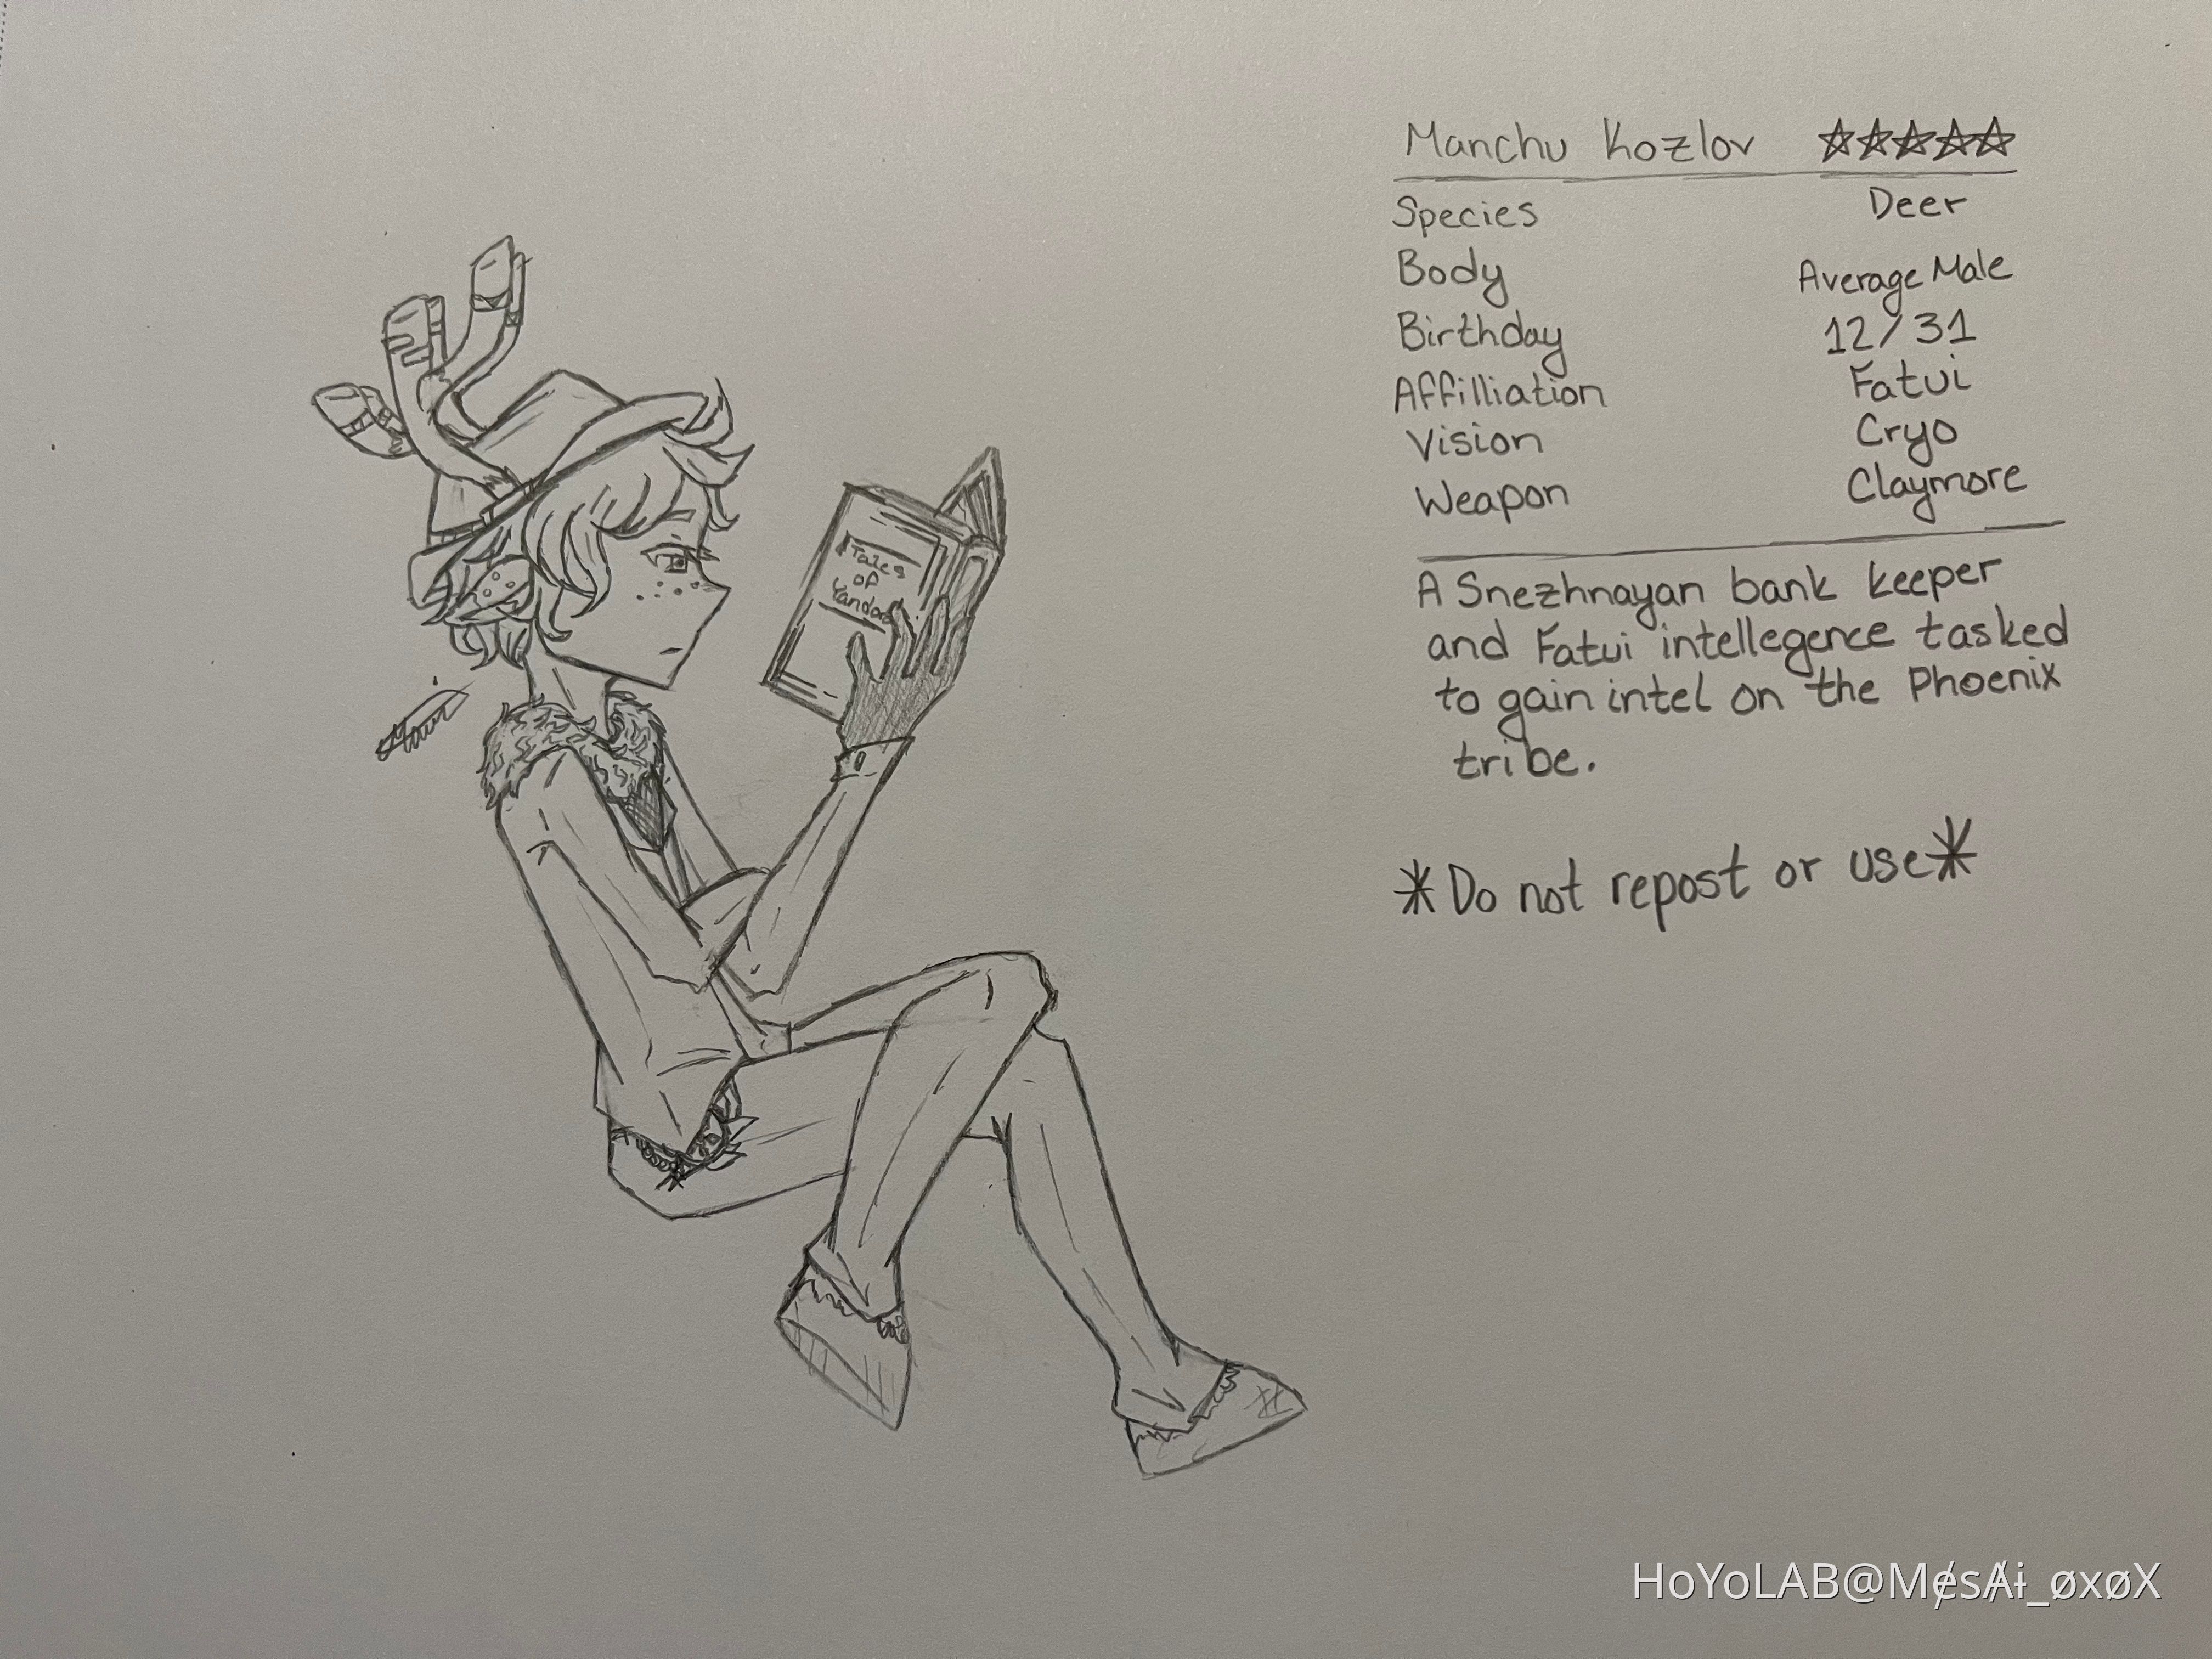 Manchu Kozlov ☆☆☆☆☆
Species Deer
Body Average Male
Birthday 12/31
Affilliation Fatui
Vision Cryo
Weapon Claymore
A Snezhnayan bank keeper
and Fatui intellegence tasked
to gain intel on the Phoenix
tribe.
*Do not repost or use*
Tales
of
HoYoLAB@M¢sȺɨ_øxøX